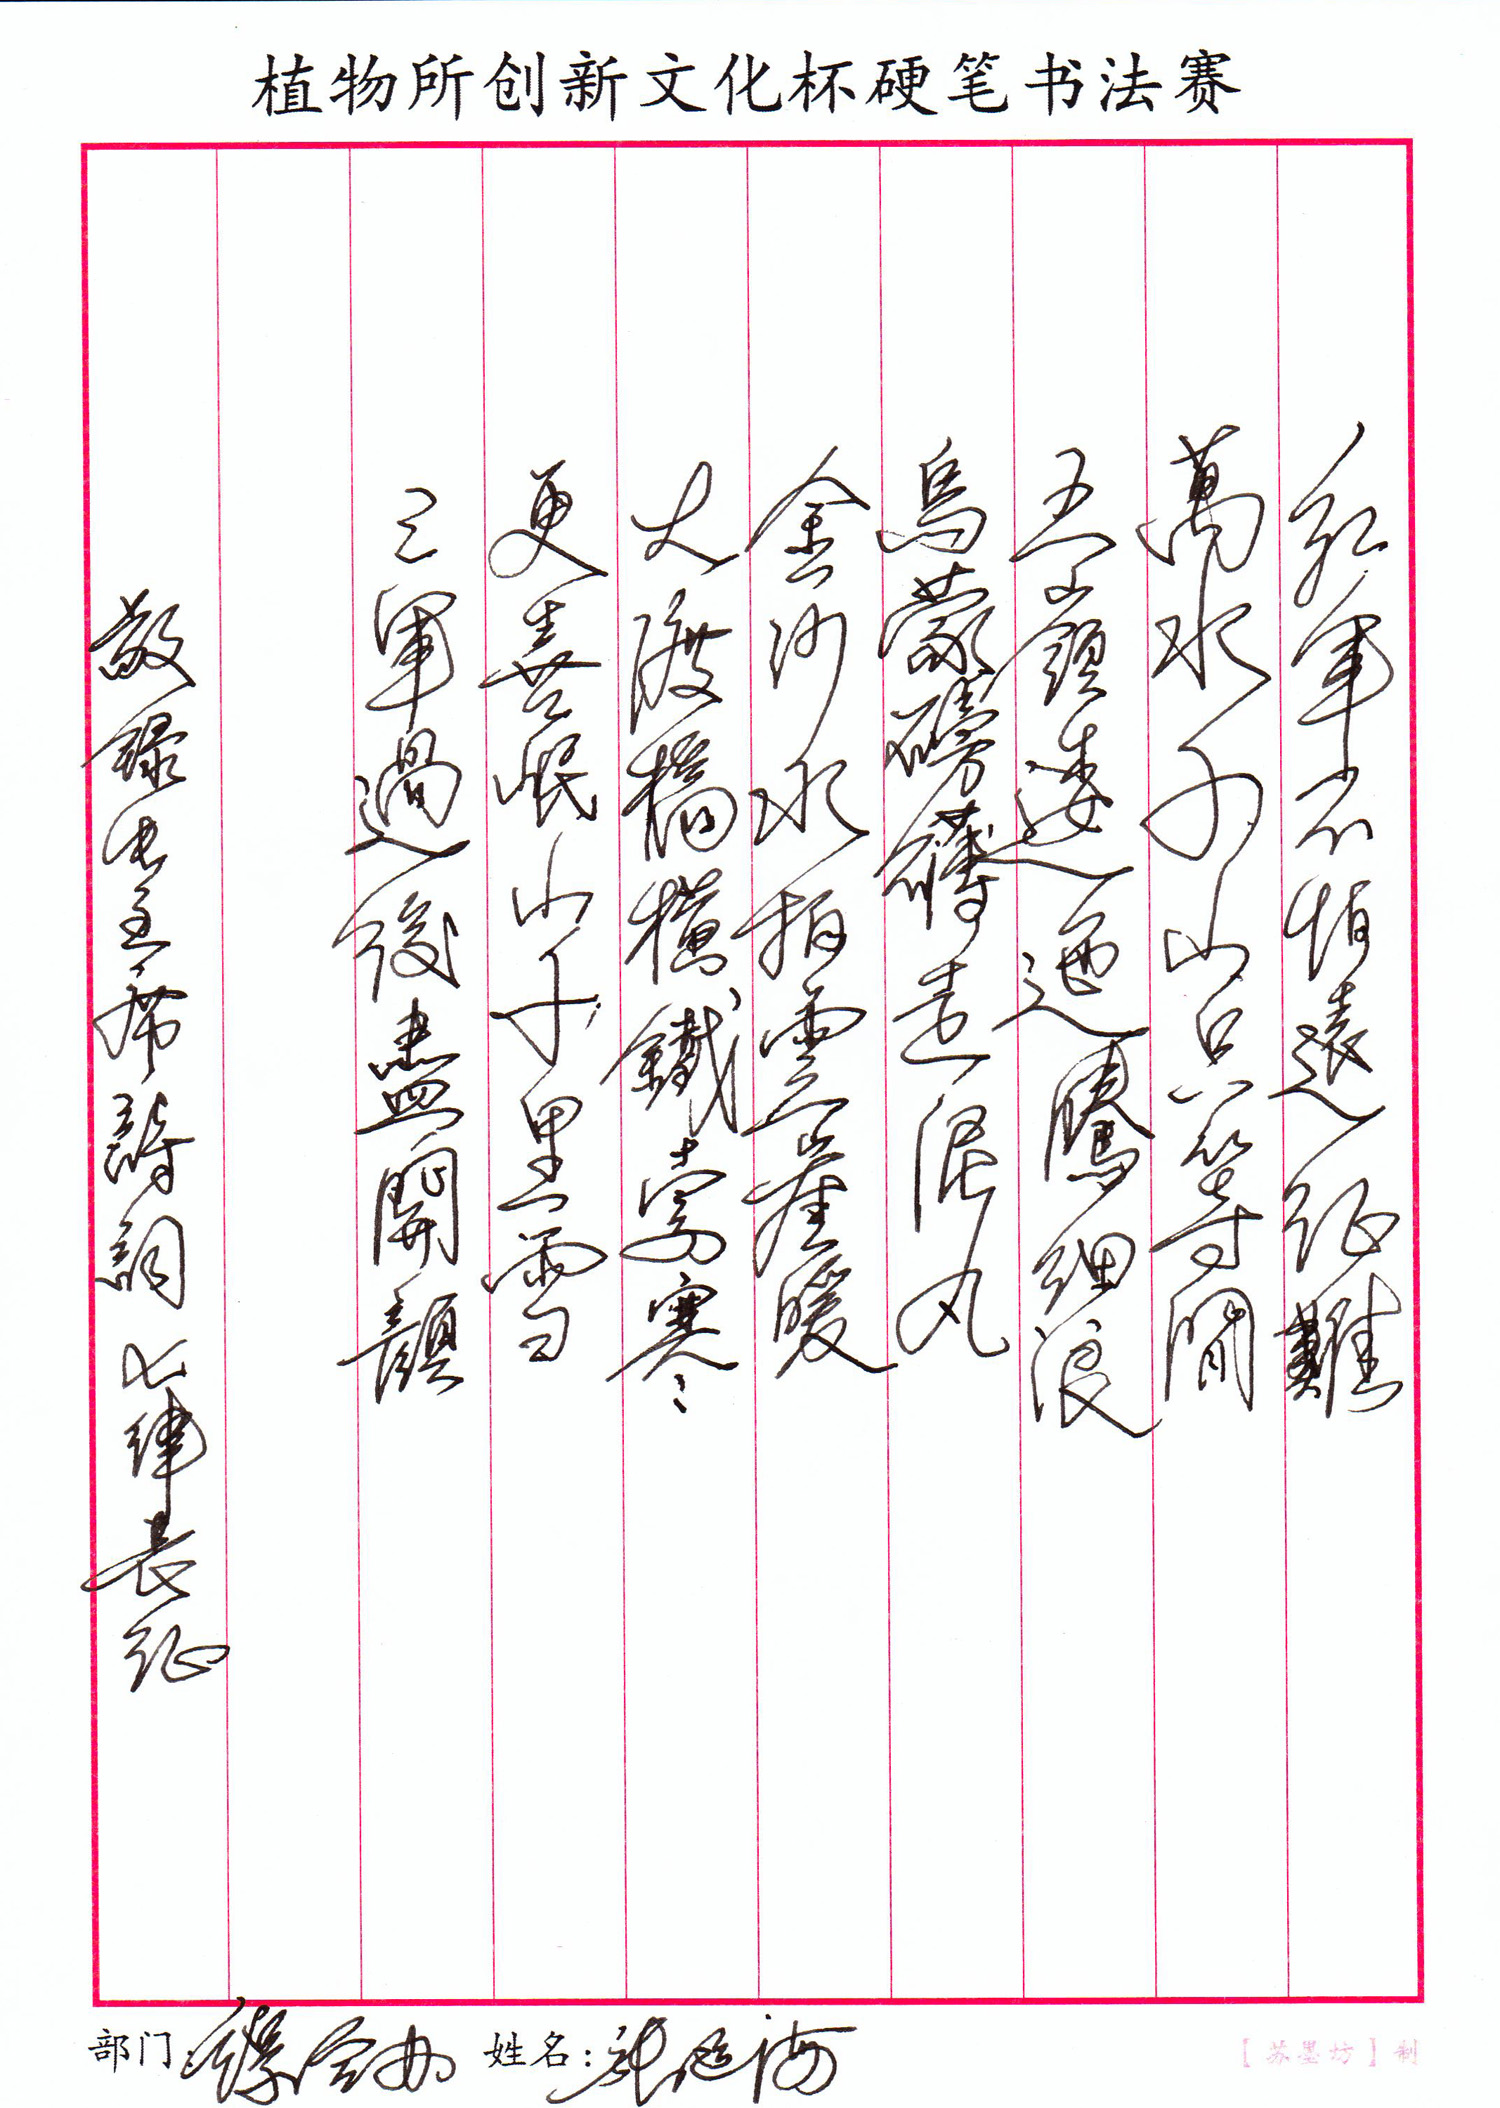 植物所创新文化杯硬笔书法赛
紅軍不怕遠征難
萬水千山只等閒
五嶺逶迤騰細浪
烏蒙磅礴走泥丸
金沙水拍雲崖暖
大渡橋橫鐵索寒
更喜岷山千里雪
三軍過後盡開顏
敬錄毛主席詩詞七律長征
部门: 學会办 姓名:
【苏墨坊】制